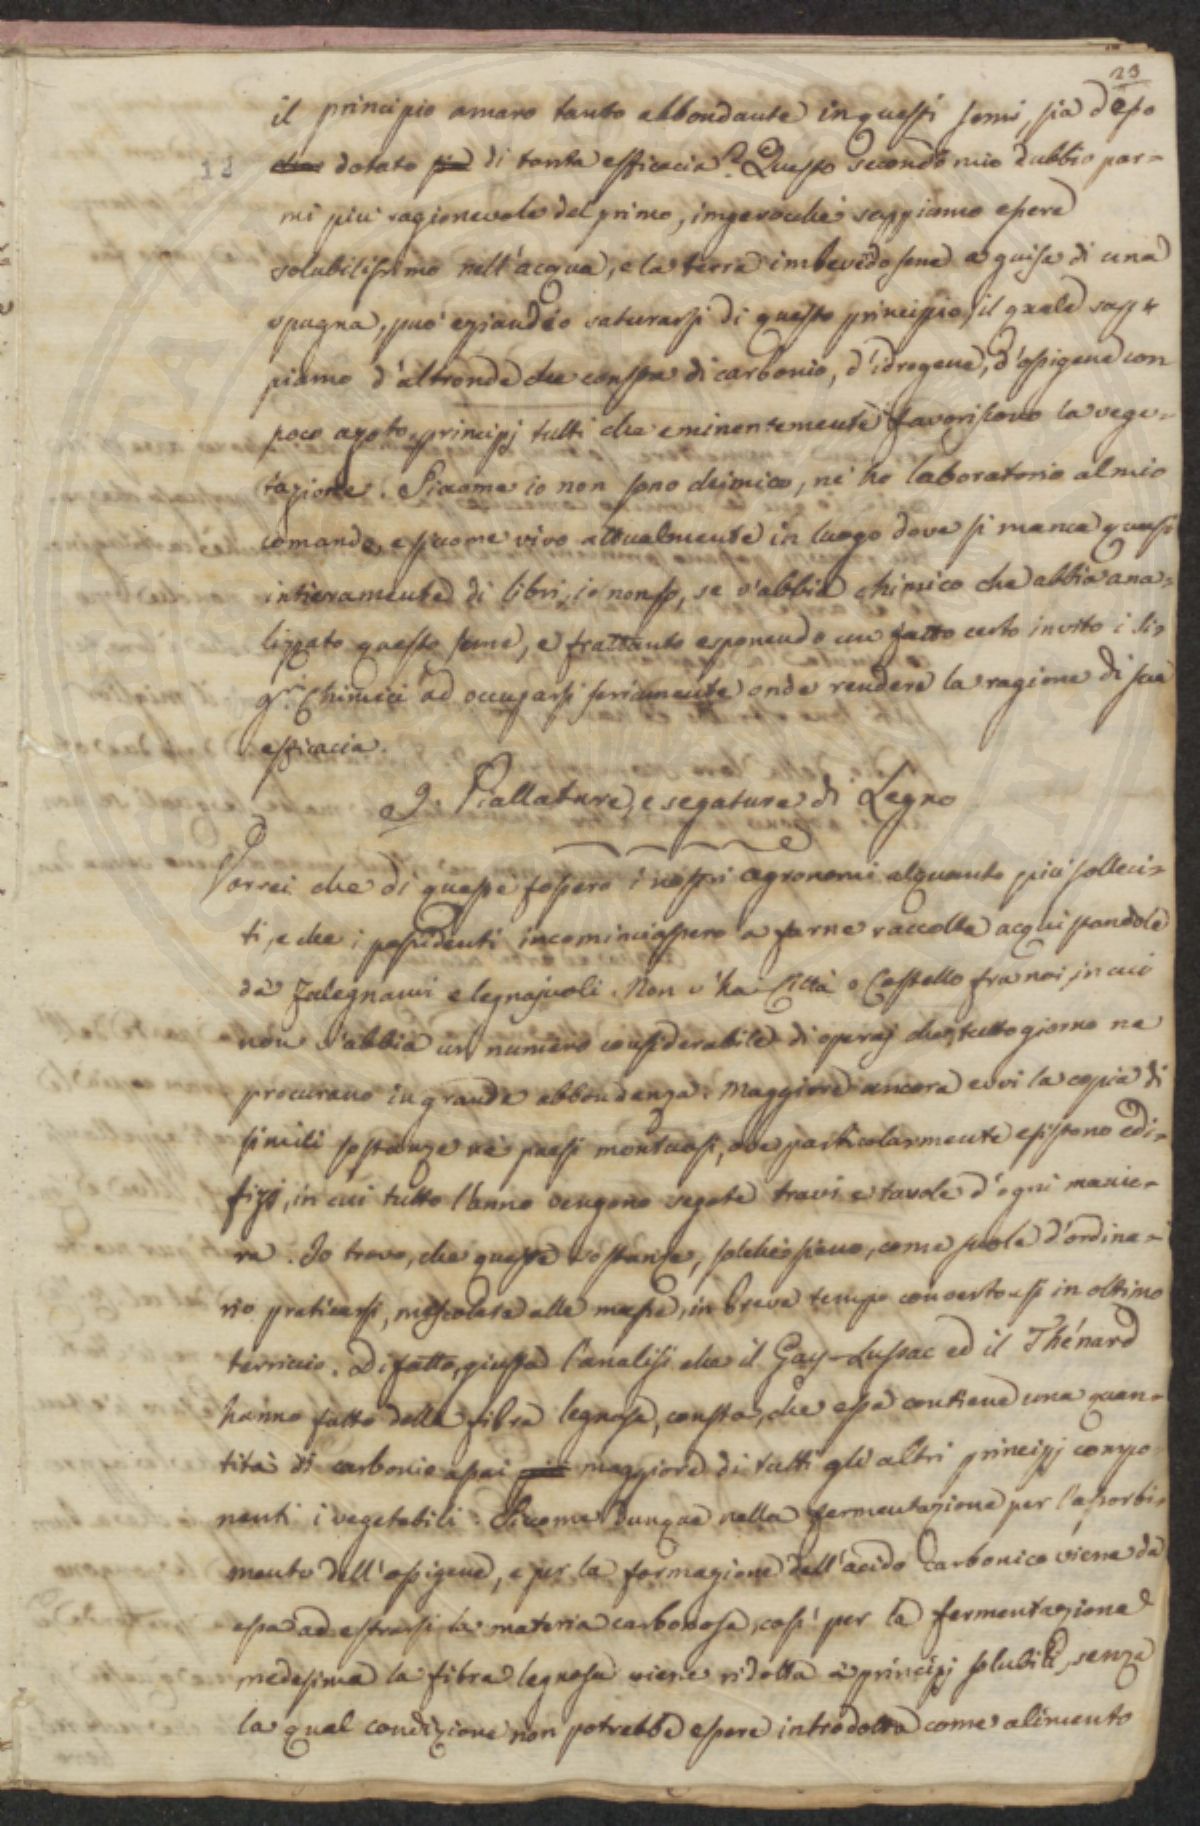 23
il principio amaro tanto abbondante in questi semi, sia desso
dotato di tanta efficacia? Questo secondo mio dubbio par-
mi più ragionevole del primo, imperocchè sappiamo essere
solubilissimo nell'acqua, e la terra imbevidosene a guisa di una
spugna, può eziandio saturarsi di questo principio, il quale sap-
piamo d'altronde che consta di carbonio, d'idrogene, d'ossigene con
poco azoto, principj tutti che eminentemente favoriscono la vege-
tazione. Siccome io non sono chimico, nè ho laboratorio al mio
comando, e siccome vivo attualmente in luogo dove si manca quasi
intieramente di libri, io non so, se v'abbia chimico che abbia ana-
lizzato questo seme, e frattanto esponendo un fatto certo invito i Si-
gri Chimici ad occuparsi seriamente onde rendere la ragione di sua
efficacia.
9. Piallature, e segature di Legno
Vorrei che di queste fossero i nostri agronomi alquanto più solleci-
ti, e che i possidenti incominciassero a farne raccolta acquistandole
da' falegnami e legnajuoli. Non v'ha Città o Castello fra noi, in cui
non v'abbia un numero considerabile di operaj che tutto giorno ne
procurano in grande abbondanza. Maggiore ancora evvi la copia di
simili sostanze ne' paesi montuosi, ove particolarmente esistono edi-
fizj, in cui tutto l'anno vengono segate travi e tavole d'ogni manie-
ra. Io trovo, che queste sostanze, solchè sieno, come suole d'ordina-
rio praticarsi, mescolate alle masse, in breve tempo convertonsi in ottimo
terriccio. Di fatto, giusta l'analisi che il Gay-Lussac ed il Thénard
hanno fatto della fibra legnosa, consta, che essa contiene una quan-
tità di carbonio assai maggiore di tutti gli altri principj compo-
nenti i vegetabili. Siccome dunque nella fermentazione per l'assorbi-
mento dell'ossigene, e per la formazione dell'acido carbonico viene da
essa ad estrarsi la materia carbonosa, così per la fermentazione
medesima la fibra legnosa viene ridotta a principj solubili, senza
la qual condizione non potrebbe essere introdotta come alimento